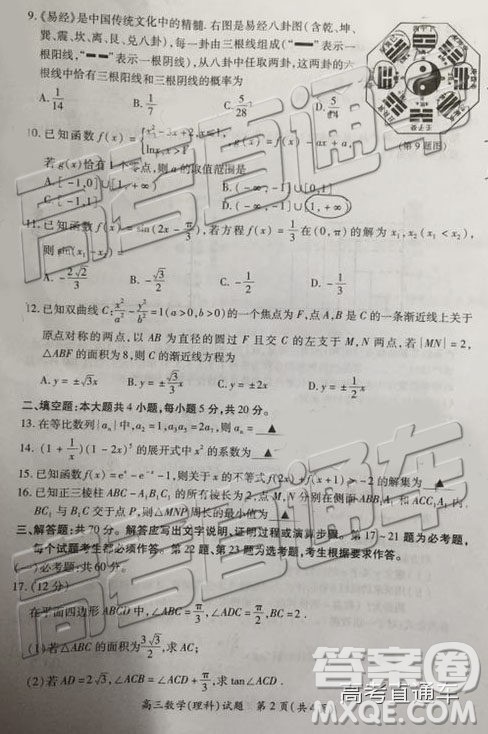 9.《易经》是中国传统文化中的精髓. 右图是易经八卦图(含乾、坤、
巽、震、坎、离、艮、兑八卦), 每一卦由三根线组成("━━"表示一
根阳线, "━ ━"表示一根阴线), 从八卦中任取两卦, 这两卦的六
根线中恰有三根阳线和三根阴线的概率为
A. 1/14 B. 1/7 C. 5/28 D. 5/14
(第9题图)
10. 已知函数 f(x) =
若 g(x)恰有1个零点, 则 a 的取值范围是
A. [-1,0]∪[1,+∞) B. (-∞,-1]∪[0,1]
C. [-1,1] D. (-∞,-1]∪[1,+∞)
11. 已知函数 f(x) = sin(2x - π/3), 若方程 f(x) = 1/3 在(0,π)的解为 x₁,x₂(x₁ < x₂),
A. -2√2/3 B. -√3/2 C. -1/2 D. -1/3
12. 已知双曲线 C: x²/a² - y²/b² = 1(a>0,b>0)的一个焦点为 F, 点 A,B 是 C 的一条渐近线上关于
原点对称的两点, 以 AB 为直径的圆过 F 且交 C 的左支于 M,N 两点, 若|MN| = 2,
△ABF 的面积为 8, 则 C 的渐近线方程为
A. y = ±√3x B. y = ±√3/3 x C. y = ±2x D. y = ±1/2 x
二、填空题: 本大题共 4 小题, 每小题 5 分, 共 20 分。
13. 在等比数列{aₙ}中, a₂ = 1, a₃a₅ = 2a₇, 则 aₙ = ▲
14. (1 + 1/x)(1 - 2x)⁵ 的展开式中 x² 的系数为 ▲
15. 已知函数 f(x) = eˣ - e⁻ˣ - 1, 则关于 x 的不等式 f(2x) + f(x+1) > -2 的解集为 ▲
16. 已知正三棱柱 ABC - A₁B₁C₁ 的所有棱长为 2, 点 M,N 分别在侧面 ABB₁A₁ 和 ACC₁A₁ 内,
BC₁ 与 B₁C 交于点 P, 则△MNP 周长的最小值为 ▲
三、解答题: 共 70 分。解答应写出文字说明、证明过程或演算步骤。第 17~21 题为必考题,
每个试题考生都必须作答。第 22 题、第 23 题为选考题, 考生根据要求作答。
(一) 必考题: 共 60 分。
17. (12 分)
在平面四边形 ABCD 中, ∠ABC = π/3, ∠ADC = π/2, BC = 2.
(1) 若△ABC 的面积为 3√3/2, 求 AC;
(2) 若 AD = 2√3, ∠ACB = ∠ACD + π/3, 求 tan∠ACD.
高三数学(理科)试题 第 2 页(共 4 页)
高考直通车
高考直通车
高考直通车
答案圈
MXQE.COM